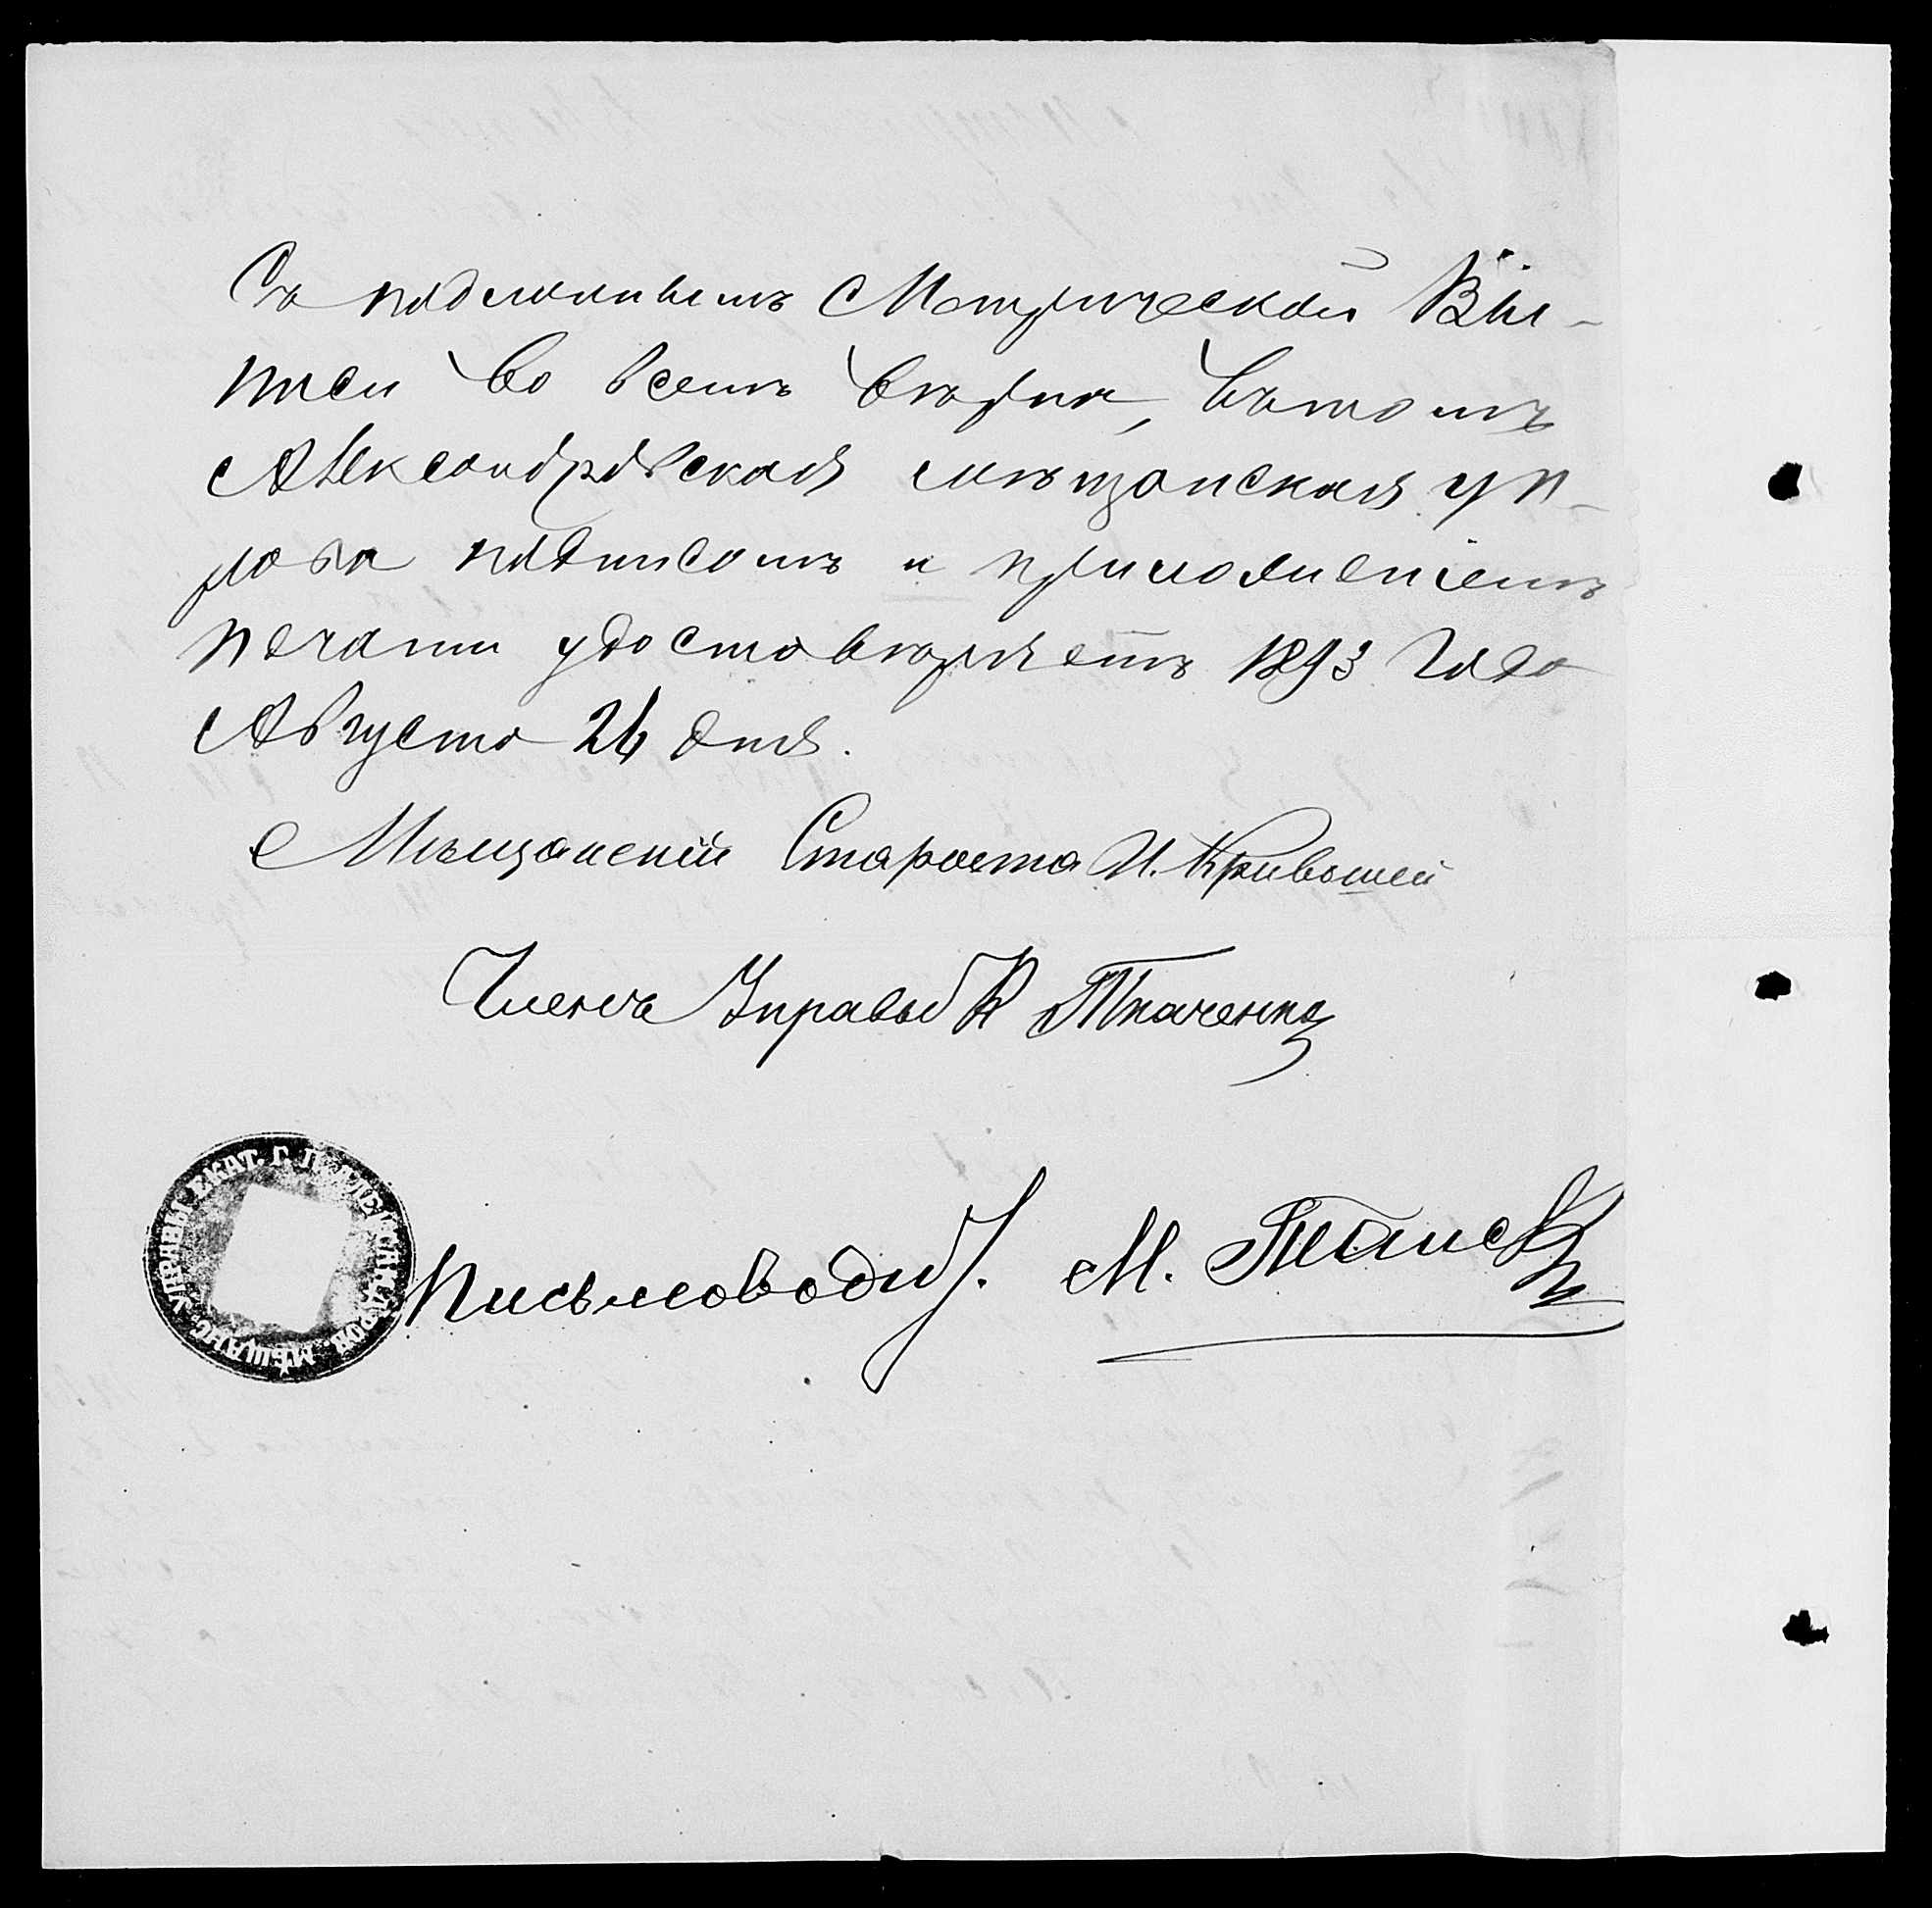 Съ подлиннымъ Метрической Вы-
писи во всемъ вѣрна, въ томъ
Александровская мѣщанская уп-
рава подписомъ и приложеніемъ
печати удостовѣряетъ 1893 года
Августа 26 дня.
Мѣщанскій Староста И. Кривошей
Членъ Управы К Ткаченко
Письмоводит. М.
ЕКАТ. Г. Г. АЛЕКСАНДРОВ. МѢЩАНС. УПРАВЫ